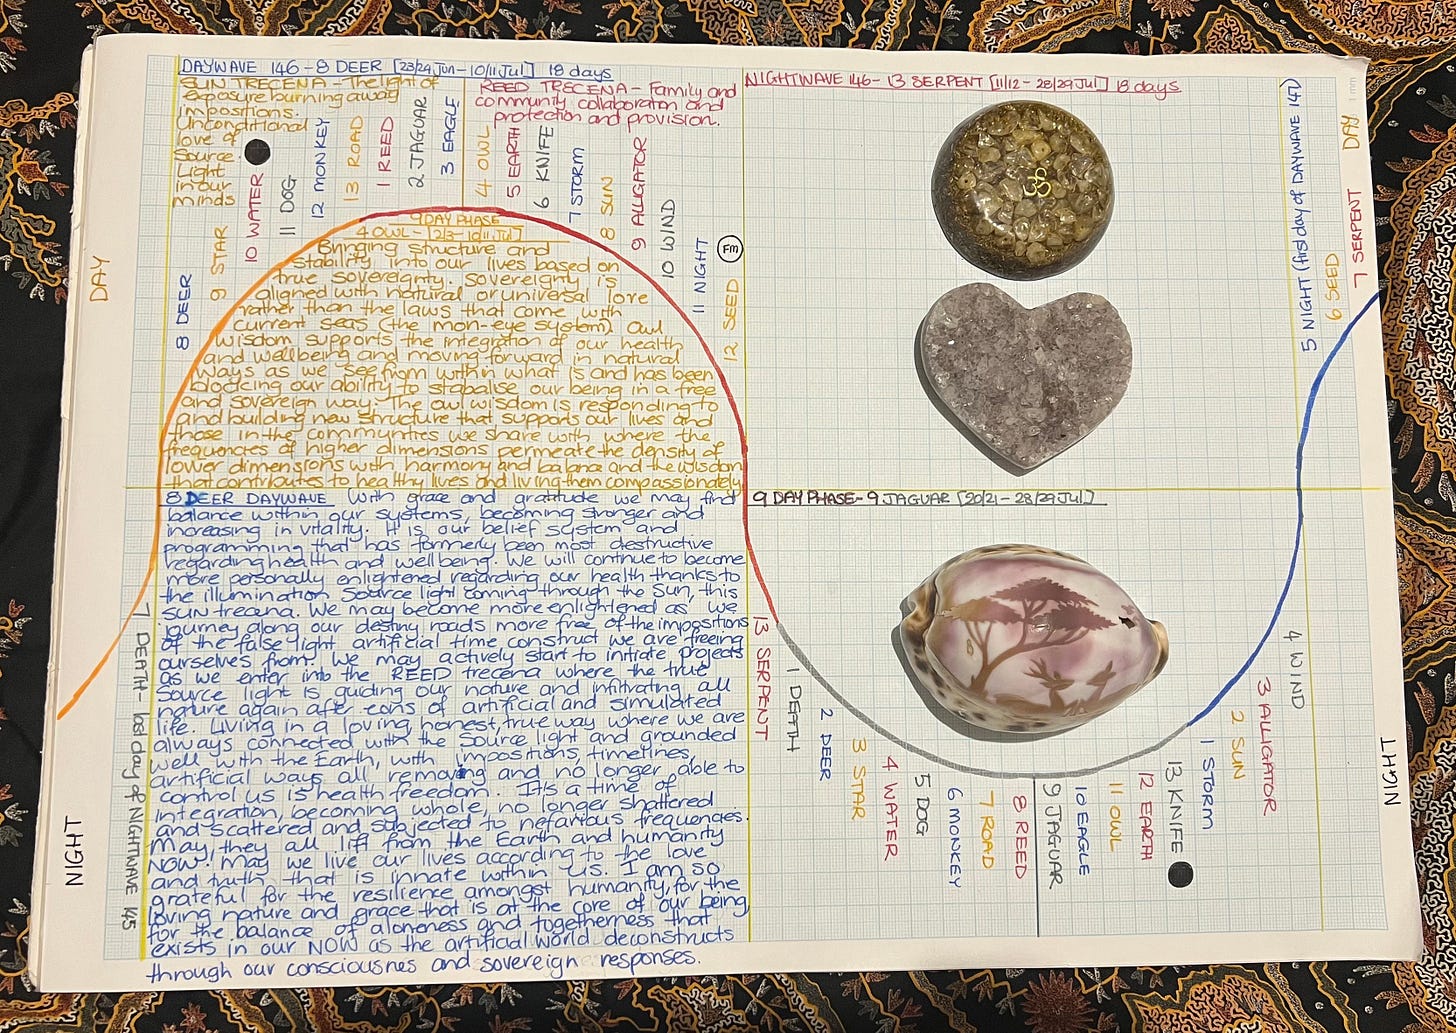 DAYWAVE 146 - 8 DEER [23/24 Jun - 10/11 Jul] 18 days
SUN TRECENA - The light of
exposure burning away
impositions.
Unconditional
love of
Source
Light
in our
minds
REED TRECENA - Family and
community, collaboration and
protection and provision.
8 DEER
9 STAR
10 WATER
11 DOG
12 MONKEY
13 ROAD
1 REED
2 JAGUAR
3 EAGLE
4 OWL
5 EARTH
6 KNIFE
7 STORM
8 SUN
9 ALLIGATOR
10 WIND
11 NIGHT
FM
12 SEED
DAY
9 DAY PHASE
4 OWL - [2/3 - 10/11 Jul]
Bringing structure and
stability into our lives based on
true sovereignty. Sovereignty is
aligned with natural or universal love
rather than the laws that come with
current seas (the mon-eye system). Owl
wisdom supports the integration of our health
and wellbeing and moving forward in natural
ways as we see from within what is and has been
blocking our ability to stabalise our being in a free
and sovereign way. The owl wisdom is responding to
and building new structure that supports our lives and
those in the communities we share with where the
frequencies of higher dimensions permeate the density of
lower dimensions with harmony and balance and the wisdom
that contributes to healthy lives and living them compassionately
8 DEER DAYWAVE With grace and gratitude we may find
balance within our systems, becoming stronger and
increasing in vitality. It is our belief system and
programming that has formerly been most destructive
regarding health and wellbeing. We will continue to become
more personally enlightened regarding our health thanks to
the illumination Source light coming through the Sun, this
sun trecena. We may become more enlightened as we
journey along our destiny roads more free of the impositions
of the false light artificial time construct we are freeing
ourselves from. We may actively start to initiate projects
as we enter into the REED trecena where the true
Source light is guiding our nature and infiltrating all
nature again after eons of artificial and simulated
life. Living in a loving, honest, true way where we are
always connected with the Source light and grounded
well with the Earth, with impositions, timelines,
artificial ways all removing and no longer able to
control us is health freedom. It's a time of
integration, becoming whole, no longer shattered
and scattered and subjected to nefarious frequencies.
May they all lift from the Earth and humanity
NOW! May we live our lives according to the love
and truth that is innate within us. I am so
grateful for the resilience amongst humanity, for the
loving nature and grace that is at the core of our being
for the balance of aloneness and togetherness that
exists in our NOW as the artificial world deconstructs
through our consciousnes and sovereign responses.
7 DEATH - last day of NIGHTWAVE 145
NIGHT
NIGHTWAVE 146 - 13 SERPENT [11/12 - 28/29 Jul] 18 days
9 DAY PHASE - 9 JAGUAR [20/21 - 28/29 Jul]
13 SERPENT
1 DEATH
2 DEER
3 STAR
4 WATER
5 DOG
6 MONKEY
7 ROAD
8 REED
9 JAGUAR
10 EAGLE
11 OWL
12 EARTH
13 KNIFE
1 STORM
2 SUN
3 ALLIGATOR
4 WIND
5 NIGHT (first day of DAYWAVE 147)
6 SEED
7 SERPENT
DAY
1 mm
NIGHT